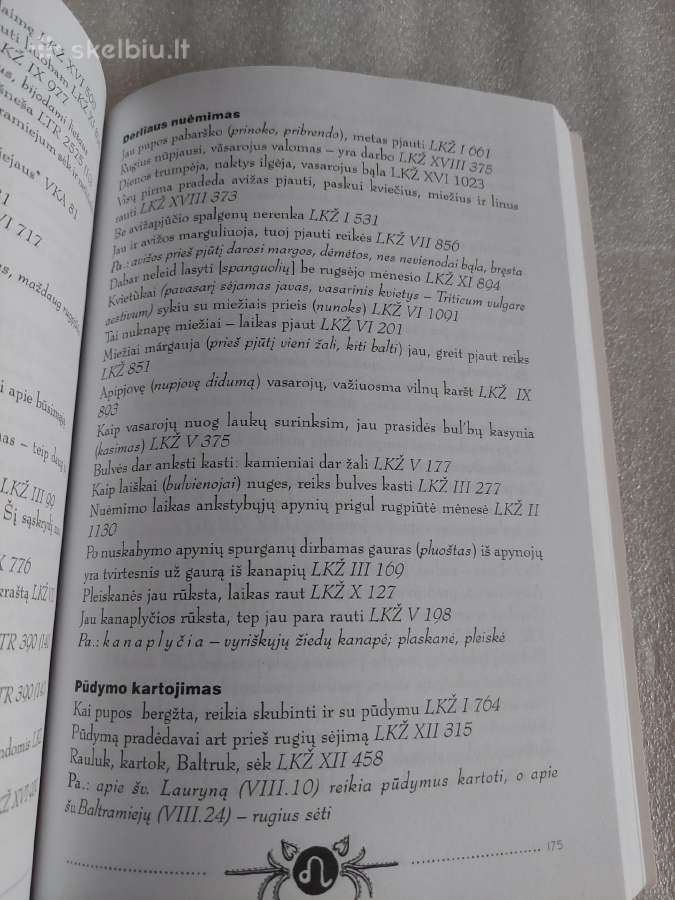 skelbiu.lt
XVI 500
LKŽ IX 977
nešneša LTR 2575 (10
ramiejum sėk ir
iejaus" VKA 81
VI 717
i apie būsimąjį
mas – teip daug
LKŽ III 99
Šį sąskrydį
X 776
kraštą LKŽ
TR 390 (140
TR 390 (149
Derliaus nuėmimas
Jau pupos pabarško (prinoko, pribrendo), metas pjauti LKŽ I 661
Rugius nūpjausi, vāsarojus valomas – yra darbo LKŽ XVIII 375
Dienos trumpėja, naktys ilgėja, vasarojus bąla LKŽ XVI 1023
Visų pirma pradeda avižas pjauti, paskui kviečius, miežius ir linus
rauti LKŽ XVIII 373
Be avižapjūčio spalgenų nerenka LKŽ I 531
Jau ir avižos marguliuoja, tuoj pjauti reikės LKŽ VII 856
Pa.: avižos prieš pjūtį darosi margos, dėmėtos, nes nevienodai bąla, bręsta
Dabar neleid lasyti [spanguolių] be rugsėjo mėnesio LKŽ XI 894
Kvietùkai (pavasarį sėjamas javas, vasarinis kvietys – Triticum vulgare
aestivum) sykiu su miežiais prieis (nunoks) LKŽ VI 1091
Tai nuknapę miežiai – laikas pjaut LKŽ VI 201
Miežiai márgauja (prieš pjūtį vieni žali, kiti balti) jau, greit pjaut reiks
LKŽ 851
Apipjovę (nupjovę didumą) vasarojų, važiuosma vilnų karšt LKŽ IX
893
Kaip vasarojų nuog laukų surinksim, jau prasidės bul'bų kasynia
(kasimas) LKŽ V 375
Bulvės dar anksti kasti: kamieniai dar žali LKŽ V 177
Kaip laiškai (bulvienojai) nuges, reiks bulves kasti LKŽ III 277
Nuėmimo laikas ankstybųjų apynių prigul rugpiūtė mėnesė LKŽ II
1130
Po nuskabymo apynių spurganų dirbamas gauras (pluoštas) iš apynojų
yra tvirtesnis už gaurą iš kanapių LKŽ III 169
Pleiskanės jau rūksta, laikas raut LKŽ X 127
Jau kanaplyčios rūksta, tep jau para rauti LKŽ V 198
Pa.: kanaplyčia – vyriškųjų žiedų kanapė; plaskanė, pleiskė
Pūdymo kartojimas
Kai pupos bergžta, reikia skubinti ir su pūdymu LKŽ I 764
Pūdymą pradėdavai art prieš rugių sėjimą LKŽ XII 315
Rauluk, kartok, Baltruk, sėk LKŽ XII 458
Pa.: apie šv. Lauryną (VIII.10) reikia pūdymus kartoti, o apie
šv.Baltramiejų (VIII.24) – rugius sėti
175